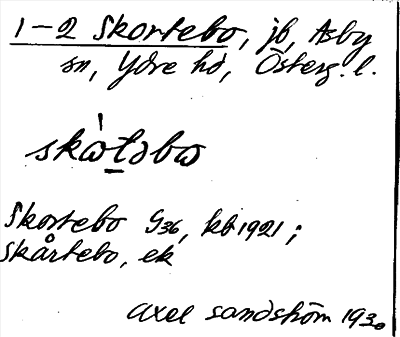 1–2 Skortebo, jb, Asby
sn, Ydre hd, Österg. l.
skὼt̠əbω
Skortebo G36, kb 1921;
Skårtebo, ek
Axel Sandström 1930